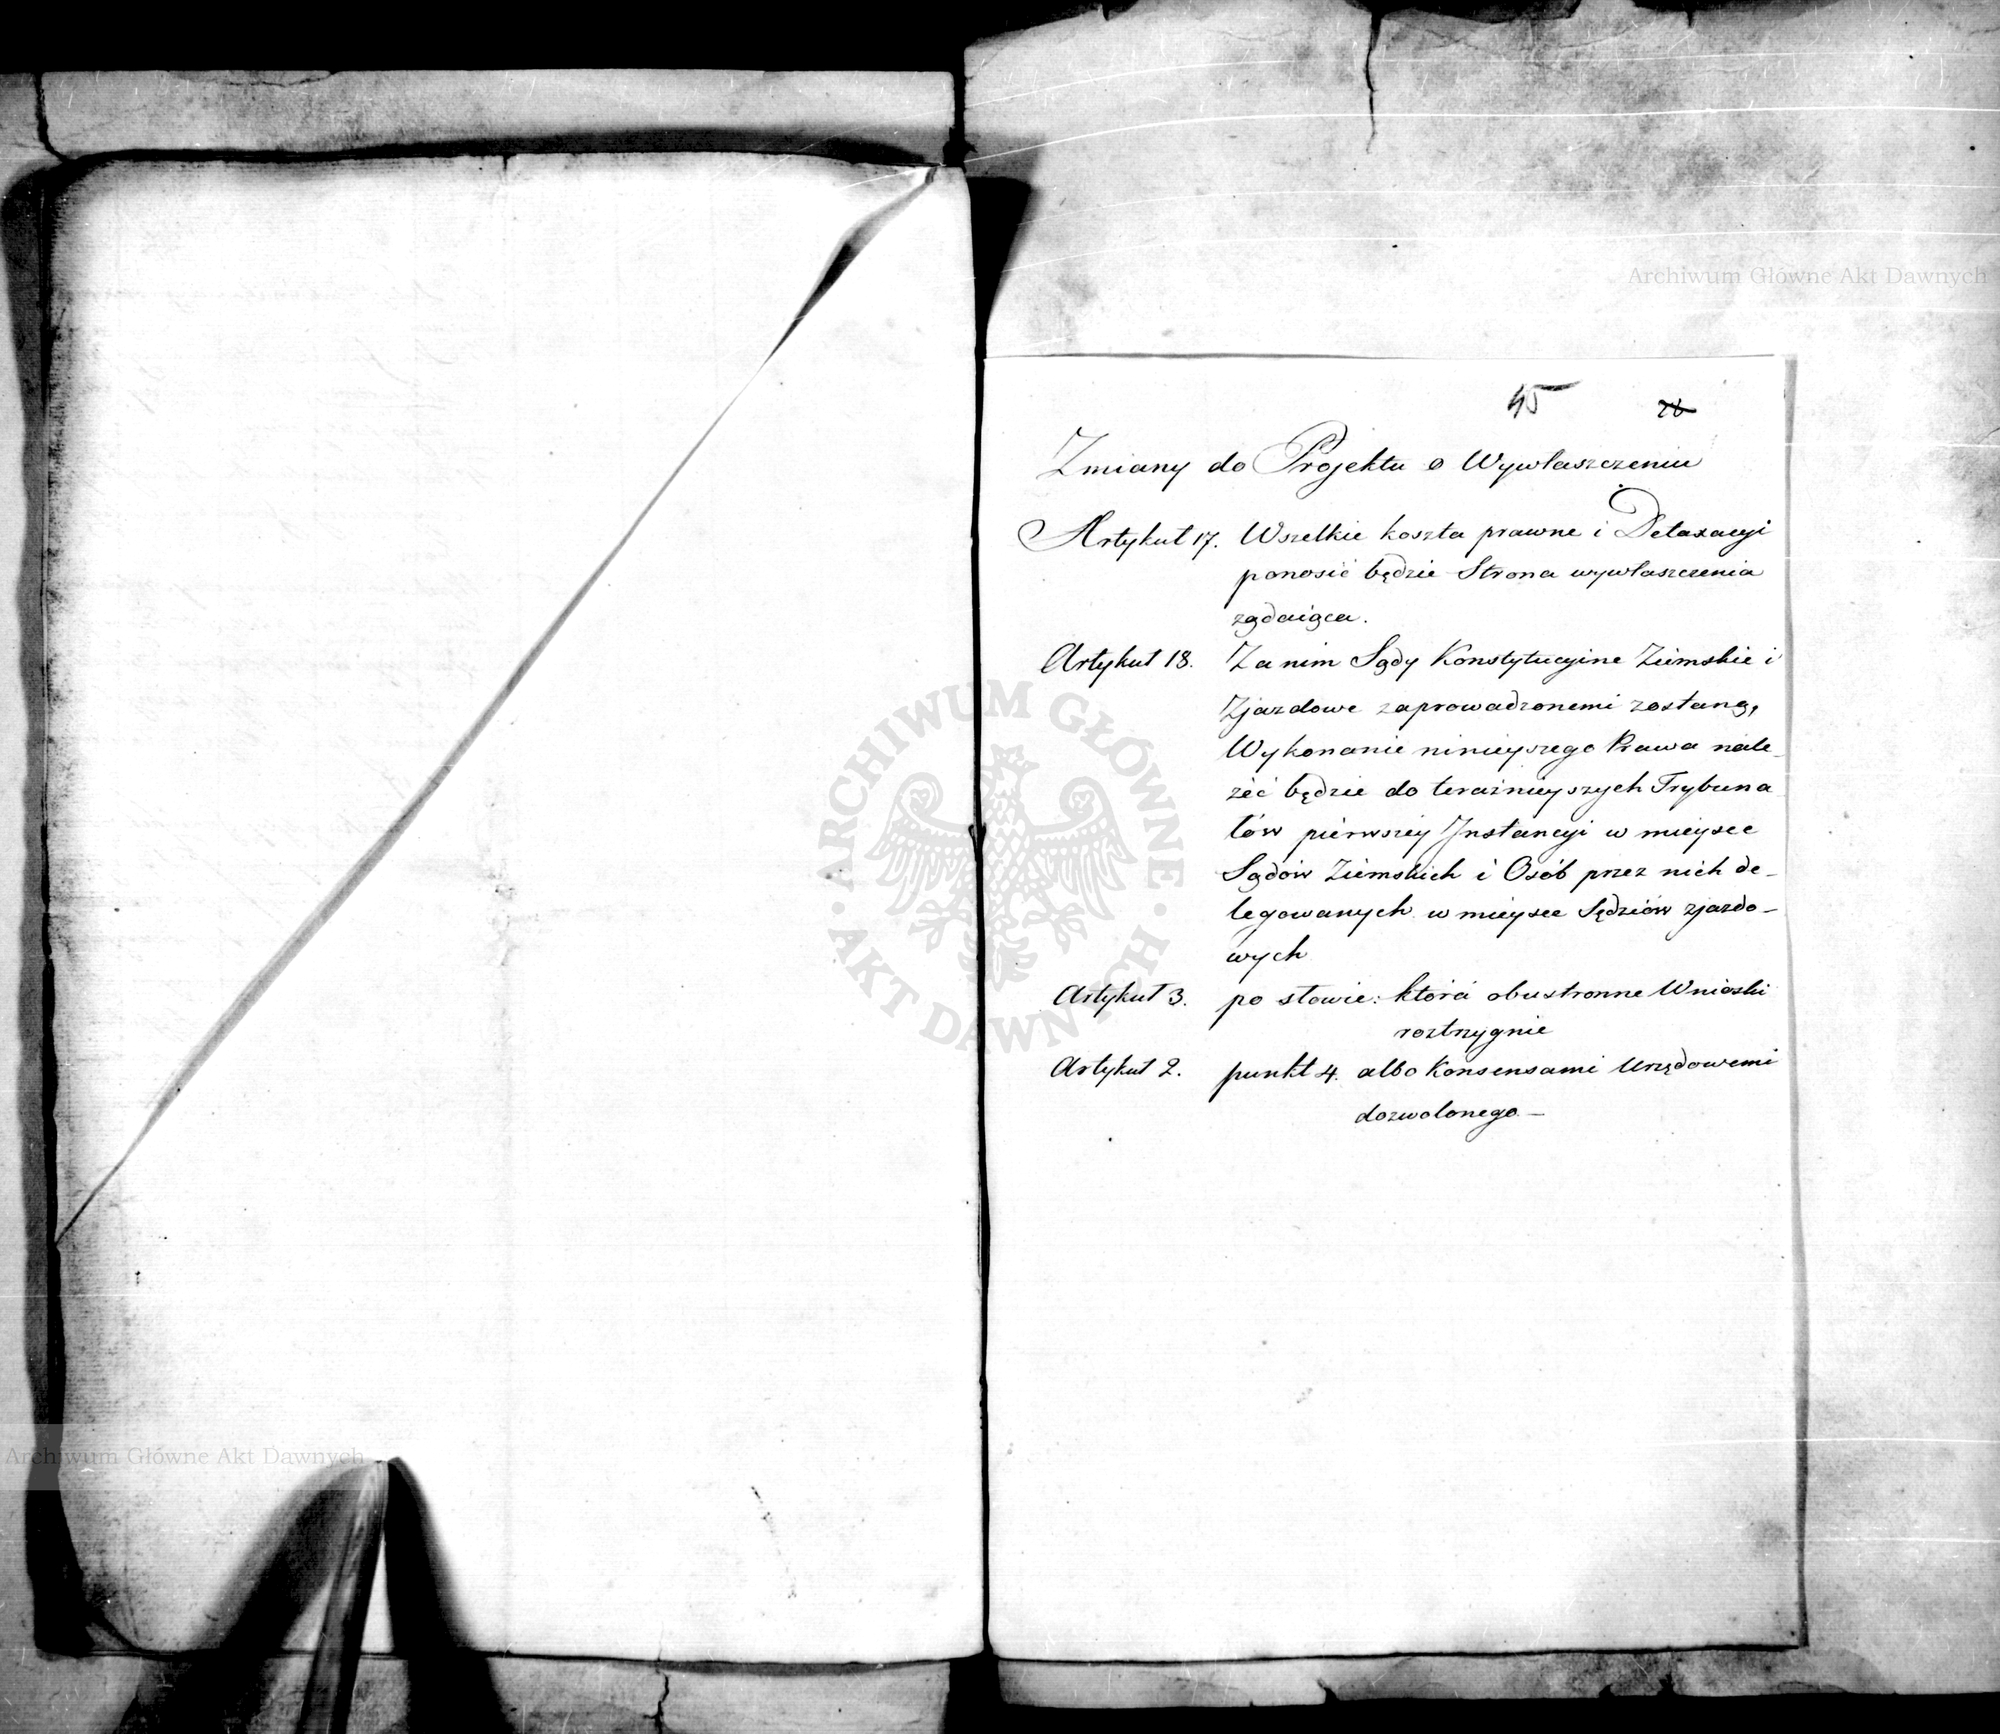 45
Zmiany do Projektu o Wywłaszczeniu
Artykuł 17. Wszelkie koszta prawne i Detaxacyi
ponosić będzie Strona wywłaszczenia
żądaiąca.
Artykuł 18. Zanim Sądy Konstytucyine Ziemskie i
Zjazdowe zaprowadzonemi zostaną,
Wykonanie ninieyszego Prawa nale-
żeć będzie do teraźnieyszych Trybuna
łów pierwszey Instancyi w mieysce
Sądów Ziemskich i Osób przez nich de-
legowanych w mieysce Sędziów zjazdo-
wych
Artykuł 3. po słowie: która obustronne Wnioski
roztrzygnie
Artykuł 2. punkt 4. albo Konsensami Urzędowemi
dozwolonego —
Archiwum Główne Akt Dawnych
ARCHIWUM GŁÓWNE
· AKT DAWNYCH ·
Archiwum Główne Akt Dawnych